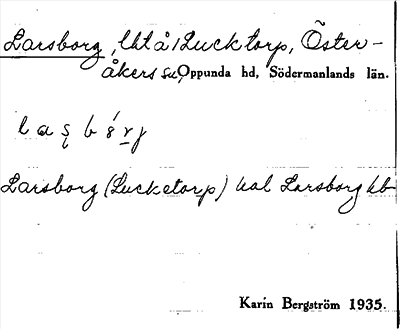 Larsborg, lht å Lucktorp, Öster-
åkers sn, Oppunda hd, Södermanlands län.
Larsborg (Lucketorp) kal Larsborg hb
Karin Bergström 1935.